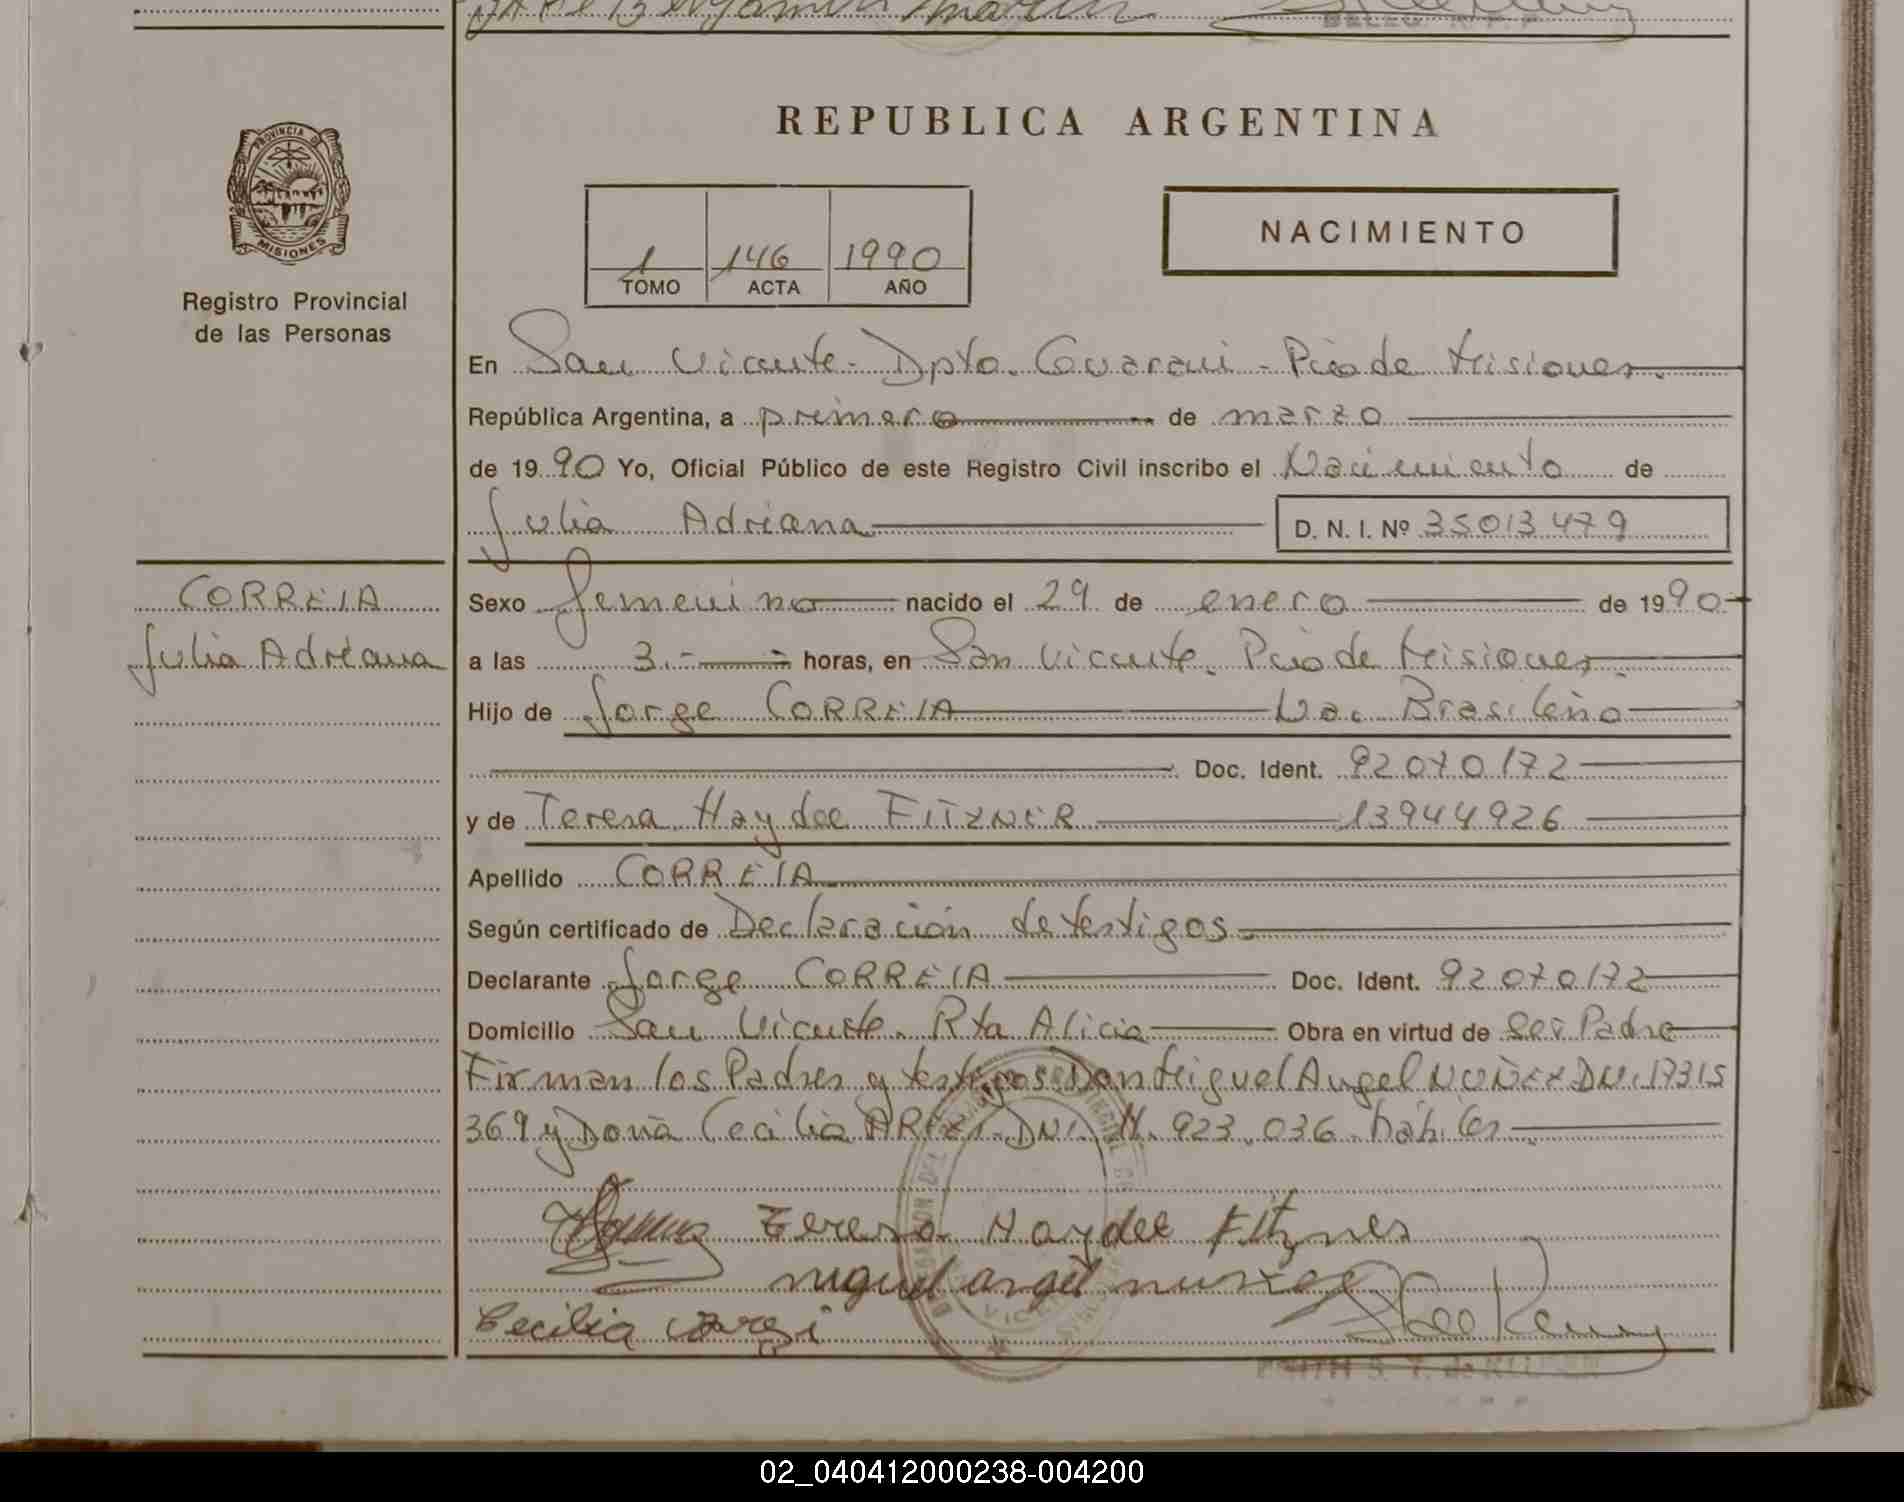 Benjamin Martin
REPUBLICA ARGENTINA
PROVINCIA DE
MISIONES
Registro Provincial
de las Personas
1 146 1990
TOMO ACTA AÑO
NACIMIENTO
En San Vicente - Dpto. Guarani - Pcia de Misiones.
República Argentina, a primero de marzo
de 1990 Yo, Oficial Público de este Registro Civil inscribo el Nacimiento de
Julia Adriana D. N. I. Nº 35013479
CORREIA
Julia Adriana
Sexo femenino nacido el 29 de enero de 1990
a las 3.- horas, en San Vicente. Pcia de Misiones.
Hijo de Jorge CORREIA Nac. Brasileño
Doc. Ident. 92070172
y de Teresa Haydee FITZNER 13944926
Apellido CORREIA
Según certificado de Declaración de testigos.
Declarante Jorge CORREIA Doc. Ident. 92070172
Domicilio San Vicente. Rta Alicia Obra en virtud de Ser Padre
Firman los Padres y testigos Don Miguel Angel NUÑEZ DNI 17315
369 y Doña Cecilia DNI. 923.036. hábiles
Teresa Haydee Fitzner
miguel angel nuñez
Cecilia
02_040412000238-004200